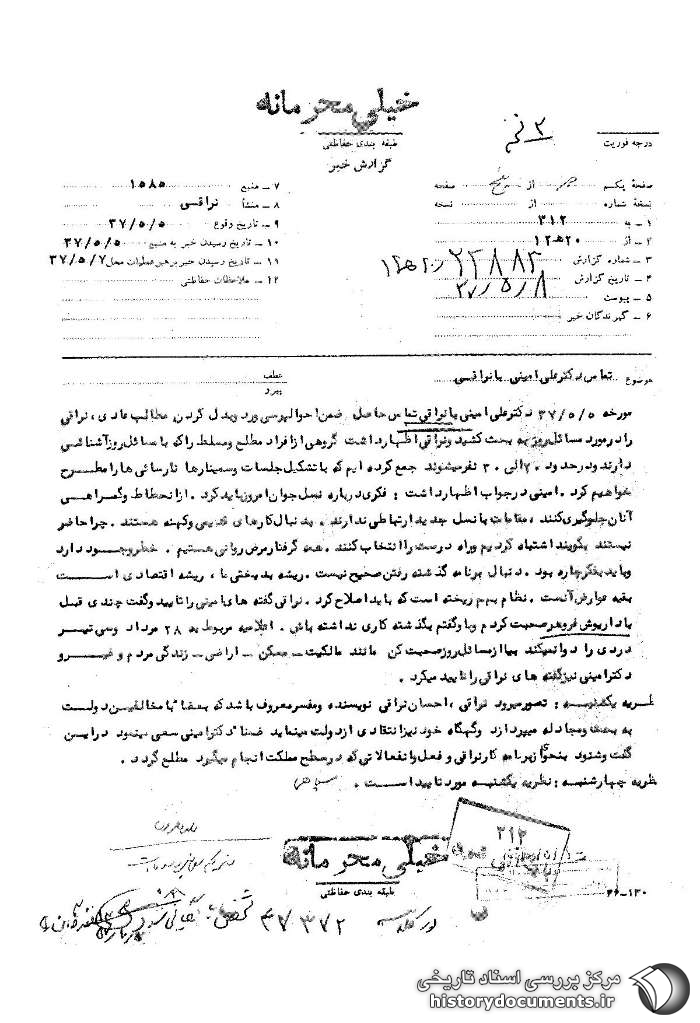 خیلی محرمانه
طبقه بندی حفاظتی
گزارش خبر
درجه فوریت
صفحهٔ یکم از صفحه
نسخهٔ شماره از نسخه
۱ ـ به ۳۱۲
۲ ـ از ۲۰ه۱۲
۳ ـ شماره گزارش ۲۲۸۸۲ / ۲۰ه۱۲
۴ ـ تاریخ گزارش ۳۷/۵/۸
۵ ـ پیوست
۶ ـ گیرندگان خبر
۷ ـ منبع ۱۵۸۵
۸ ـ منشأ نراقی
۹ ـ تاریخ وقوع ۳۷/۵/۵
۱۰ ـ تاریخ رسیدن خبر به منبع ۳۷/۵/۵
۱۱ ـ تاریخ رسیدن خبر برهبر عملیات محل ۳۷/۵/۷
۱۲ ـ ملاحظات حفاظتی
موضوع تماس دکتر علی امینی با نراقی
عطف
پیرو
مورخه ۳۷/۵/۵ دکتر علی امینی با نراقی تماس حاصل ضمن احوالپرسی ورد وبدل کردن مطالب عادی، نراقی
را در مورد مسائل روز به بحث کشید ونراقی اظهارداشت گروهی از افراد مطلع ومسلط را که با مسائل روز آشنائی
دارند ودر حدود ۲۰ الی ۳۰ نفر میشوند جمع کرده ایم که با تشکیل جلسات وسمینارها نارسائی ها را مطرح
خواهیم کرد. امینی در جواب اظهارداشت : فکری درباره نسل جوان امروز باید کرد. از انحطاط وگمراهی
آنان جلوگیری کنند، مقامات با نسل جدید ارتباطی ندارند. بدنبال کارهای قدیمی وکهنه هستند. چرا حاضر
نیستند بگویند اشتباه کردیم وراه درست را انتخاب کنند. همه گرفتار مرض روانی هستیم. خطر وجود دارد
وباید بفکر چاره بود. دنبال برنامه گذشته رفتن صحیح نیست. ریشه بدبختی ما، ریشه اقتصادی است
بقیه عوارض آنست. نظام بهم ریخته است که باید اصلاح کرد. نراقی گفته های امینی را تایید وگفت چندی قبل
با داریوش فروهر صحبت کردم وباو گفتم بگذشته کاری نداشته باش. اعلامیه مربوط به ۲۸ مرداد وسی تیر
دردی را دوا نمیکند بیا از مسائل روز صحبت کن مانند مالکیت ـ مسکن ـ اراضی ـ زندگی مردم و غیره
دکتر امینی نیز گفته های نراقی را تایید میکرد.
نظریه یکشنبه : تصور میرود نراقی، احسان نراقی نویسنده ومفسر معروف باشد که بعضا" با مخالفین دولت
به بحث ومجادله میپردازد وگهگاه خود نیز انتقادی از دولت مینماید ضمنا" دکتر امینی سعی مینمود در این
گفت وشنود بنحوی از برنامه کار نراقی و فعل وانفعالاتی که در سطح مملکت انجام میگیرد مطلع گردد.
نظریه چهارشنبه : نظریه یکشنبه مورد تایید است.
خیلی محرمانه
طبقه بندی حفاظتی
۳۱۲
۳۶-۱۳۰
۳۷۳۷۲
مرکز بررسی اسناد تاریخی
historydocuments.ir